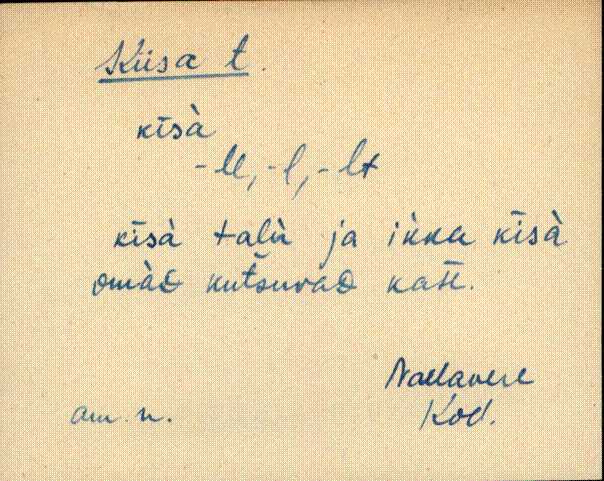 Kiisa t.
kīsà
-lle, -l, -lt
kīsà talù ja ikka kīsà
omàd kutsuvad kassi.
Naelavere
am. n. Kod.